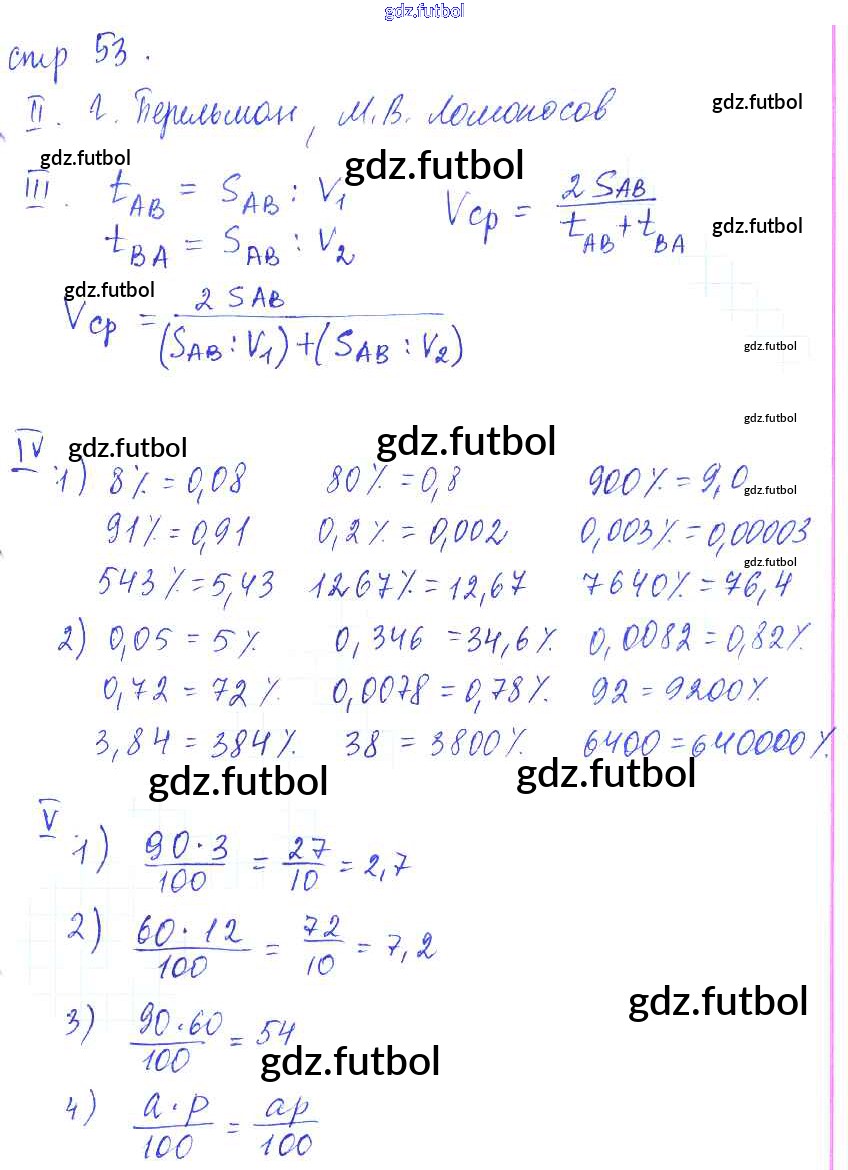 gdz.futbol
стр 53.
II. г. Перельман, М.В. Ломоносов
gdz.futbol
gdz.futbol
gdz.futbol
III. t_AB = S_AB : V_1
V_ср = 2 S_AB / (t_AB + t_BA)
t_BA = S_AB : V_2
gdz.futbol
gdz.futbol
V_ср = 2 S_AB / ((S_AB : V_1) + (S_AB : V_2))
gdz.futbol
gdz.futbol
IV gdz.futbol gdz.futbol
1) 8% = 0,08 80% = 0,8 900% = 9,0
gdz.futbol
91% = 0,91 0,2% = 0,002 0,003% = 0,00003
gdz.futbol
543% = 5,43 1267% = 12,67 7640% = 76,4
2) 0,05 = 5% 0,346 = 34,6% 0,0082 = 0,82%
0,72 = 72% 0,0078 = 0,78% 92 = 9200%
3,84 = 384% 38 = 3800% 6400 = 640000%
gdz.futbol gdz.futbol
V
1) 90·3/100 = 27/10 = 2,7
2) 60·12/100 = 72/10 = 7,2
gdz.futbol
3) 90·60/100 = 54
gdz.futbol
4) a·p/100 = ap/100